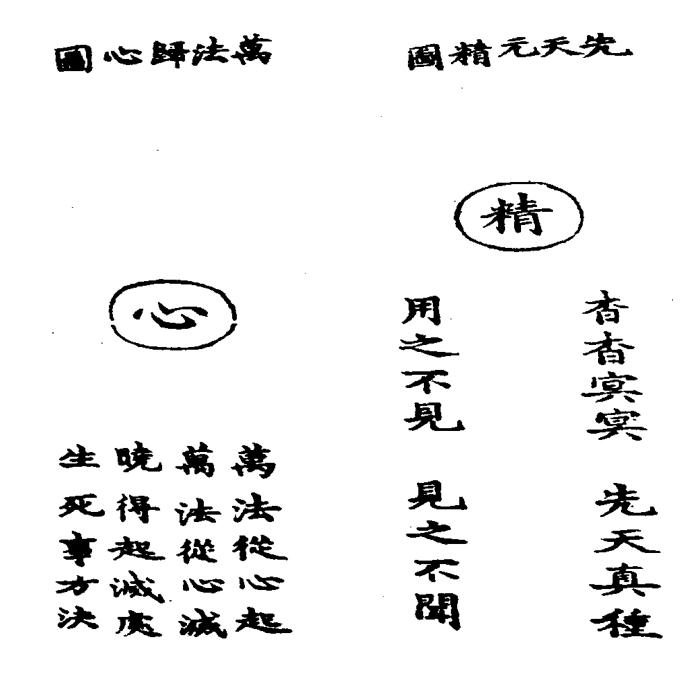 先天元精圖
精
杳杳冥冥
先天真種
用之不見
見之不聞
萬法歸心圖
心
萬法從心起
萬法從心滅
曉得起滅處
生死事方決